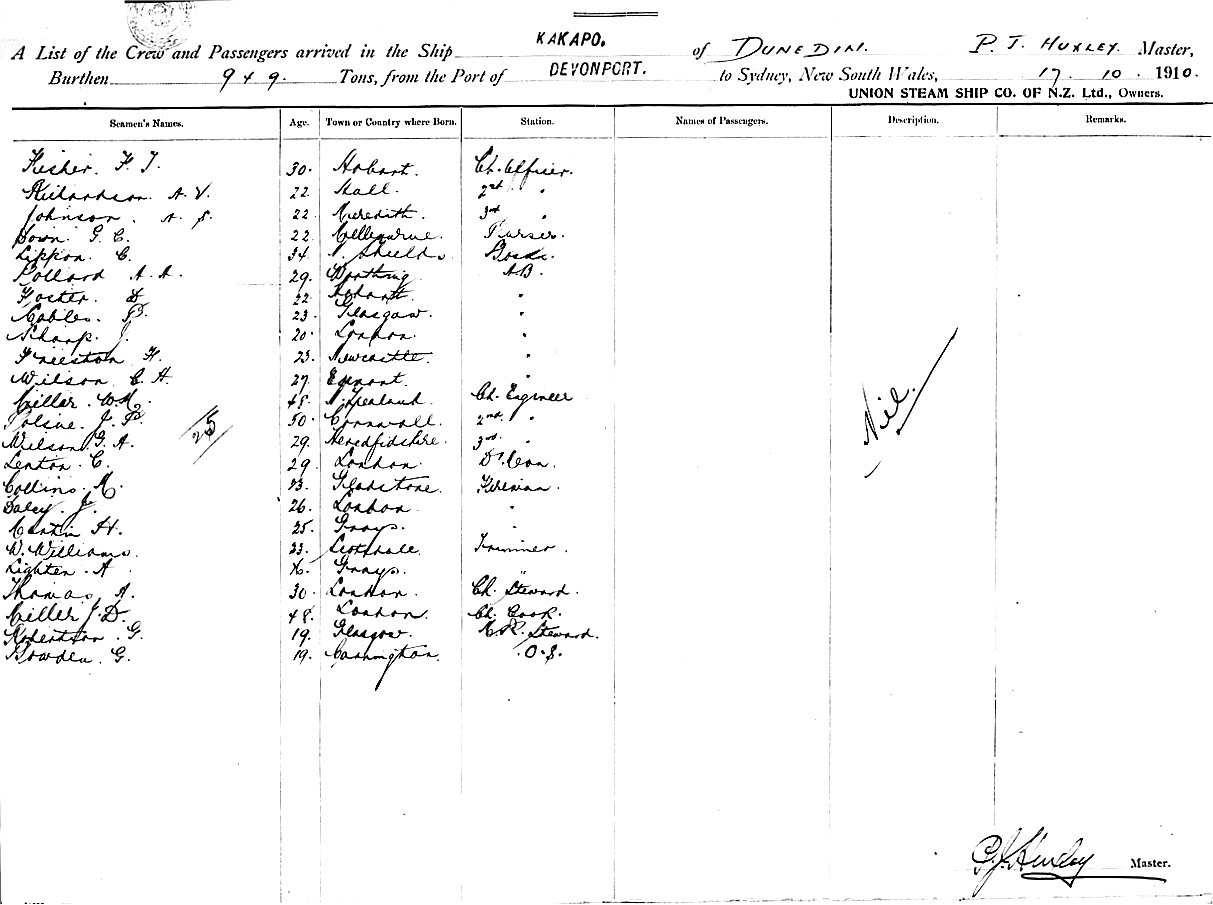 A List of the Crew and Passengers arrived in the Ship KAKAPO. of DUNEDIN. P. J. HUXLEY. Master,
Burthen 949. Tons, from the Port of DEVONPORT. to Sydney, New South Wales, 17. 10. 1910.
UNION STEAM SHIP CO. OF N.Z. Ltd., Owners.
Seamen's Names. Age. Town or Country where Born. Station. Names of Passengers. Description. Remarks.
Fisher. F. J. 30. Hobart. Ch. Officer.
Richardson. A. V. 22 Hull. 2nd "
Johnson. A. S. 22 Meredith. 3rd "
Down. G. C. 22 Melbourne. Purser.
Lippon. C. 34. N. Shields Bosn.
Pollard A. A. 29. Worthing AB.
Foster. D 22. Hobart "
23. Glasgow. "
Sharp. J. 20. London. "
Freeston H. 23. Newcastle. "
Wilson. C. H. 27 Egmont. "
Miller. W. 48. N. Zealand. Ch. Engineer
J. P. 50. Cornwall. 2nd "
25
Wilson G. A. 29. Herefidshire. 3rd "
Lenton. C. 29. London. Dk. Man.
Collins. R. 23. Gladstone. Fireman.
Daley. J. 26. London. "
Martin H. 25. Grays. "
W. Williams. 23. Scotsdale. Trimmer.
Lighten. A Grays. "
Thomas A. 30. London. Ch. Steward.
Miller J. D. 48. London. Ch. Cook.
Robertson. G. 19. Glasgow. M. R. Steward.
Bowden. G. 19. Cannington. O.S.
Nil.
P. J. Huxley Master.